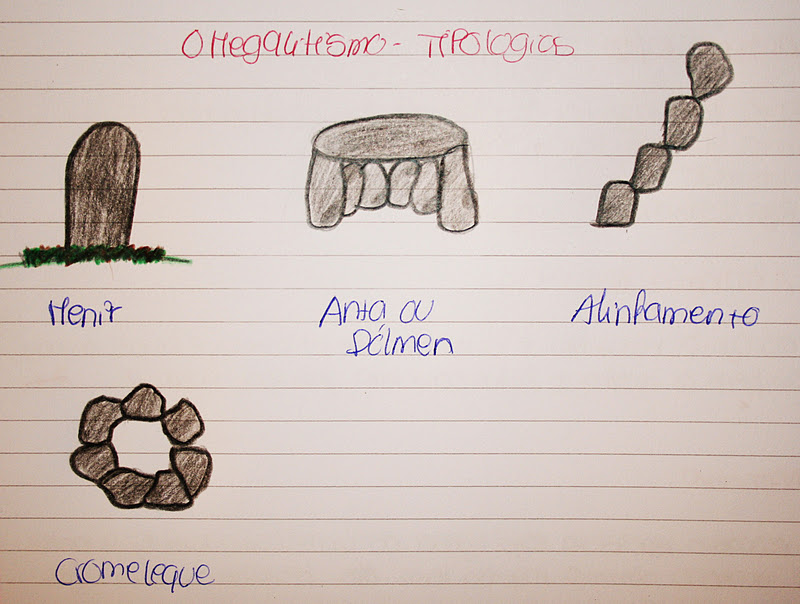 O Megalitismo - Tipologias
Menir
Anta ou
Dólmen
Alinhamento
Cromeleque